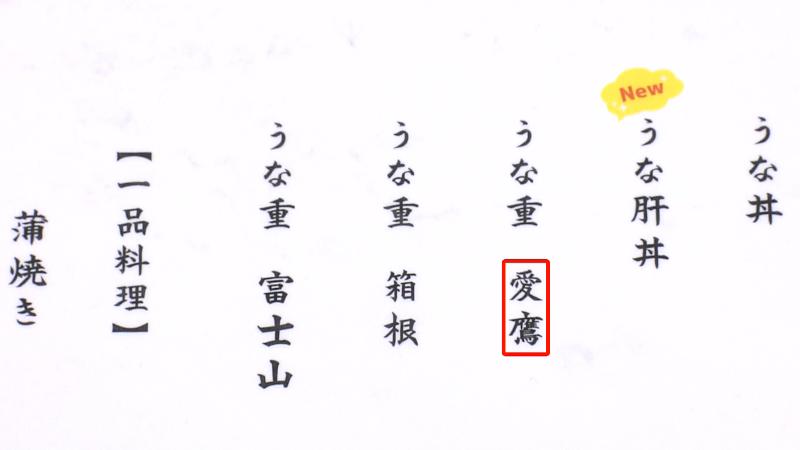 うな丼
New
うな肝丼
うな重 愛鷹
うな重 箱根
うな重 富士山
【一品料理】
蒲焼き